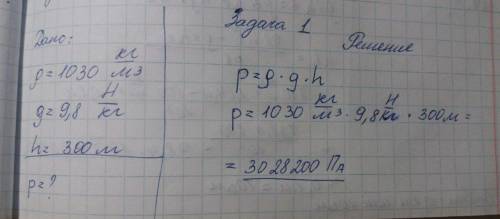 Задача 1
Дано:
ρ = 1030 кг/м3
g = 9,8 Н/кг
h = 300 м
p = ?
Решение
p = ρ · g · h
p = 1030 кг/м3 · 9,8 Н/кг · 300 м =
= 3028200 Па